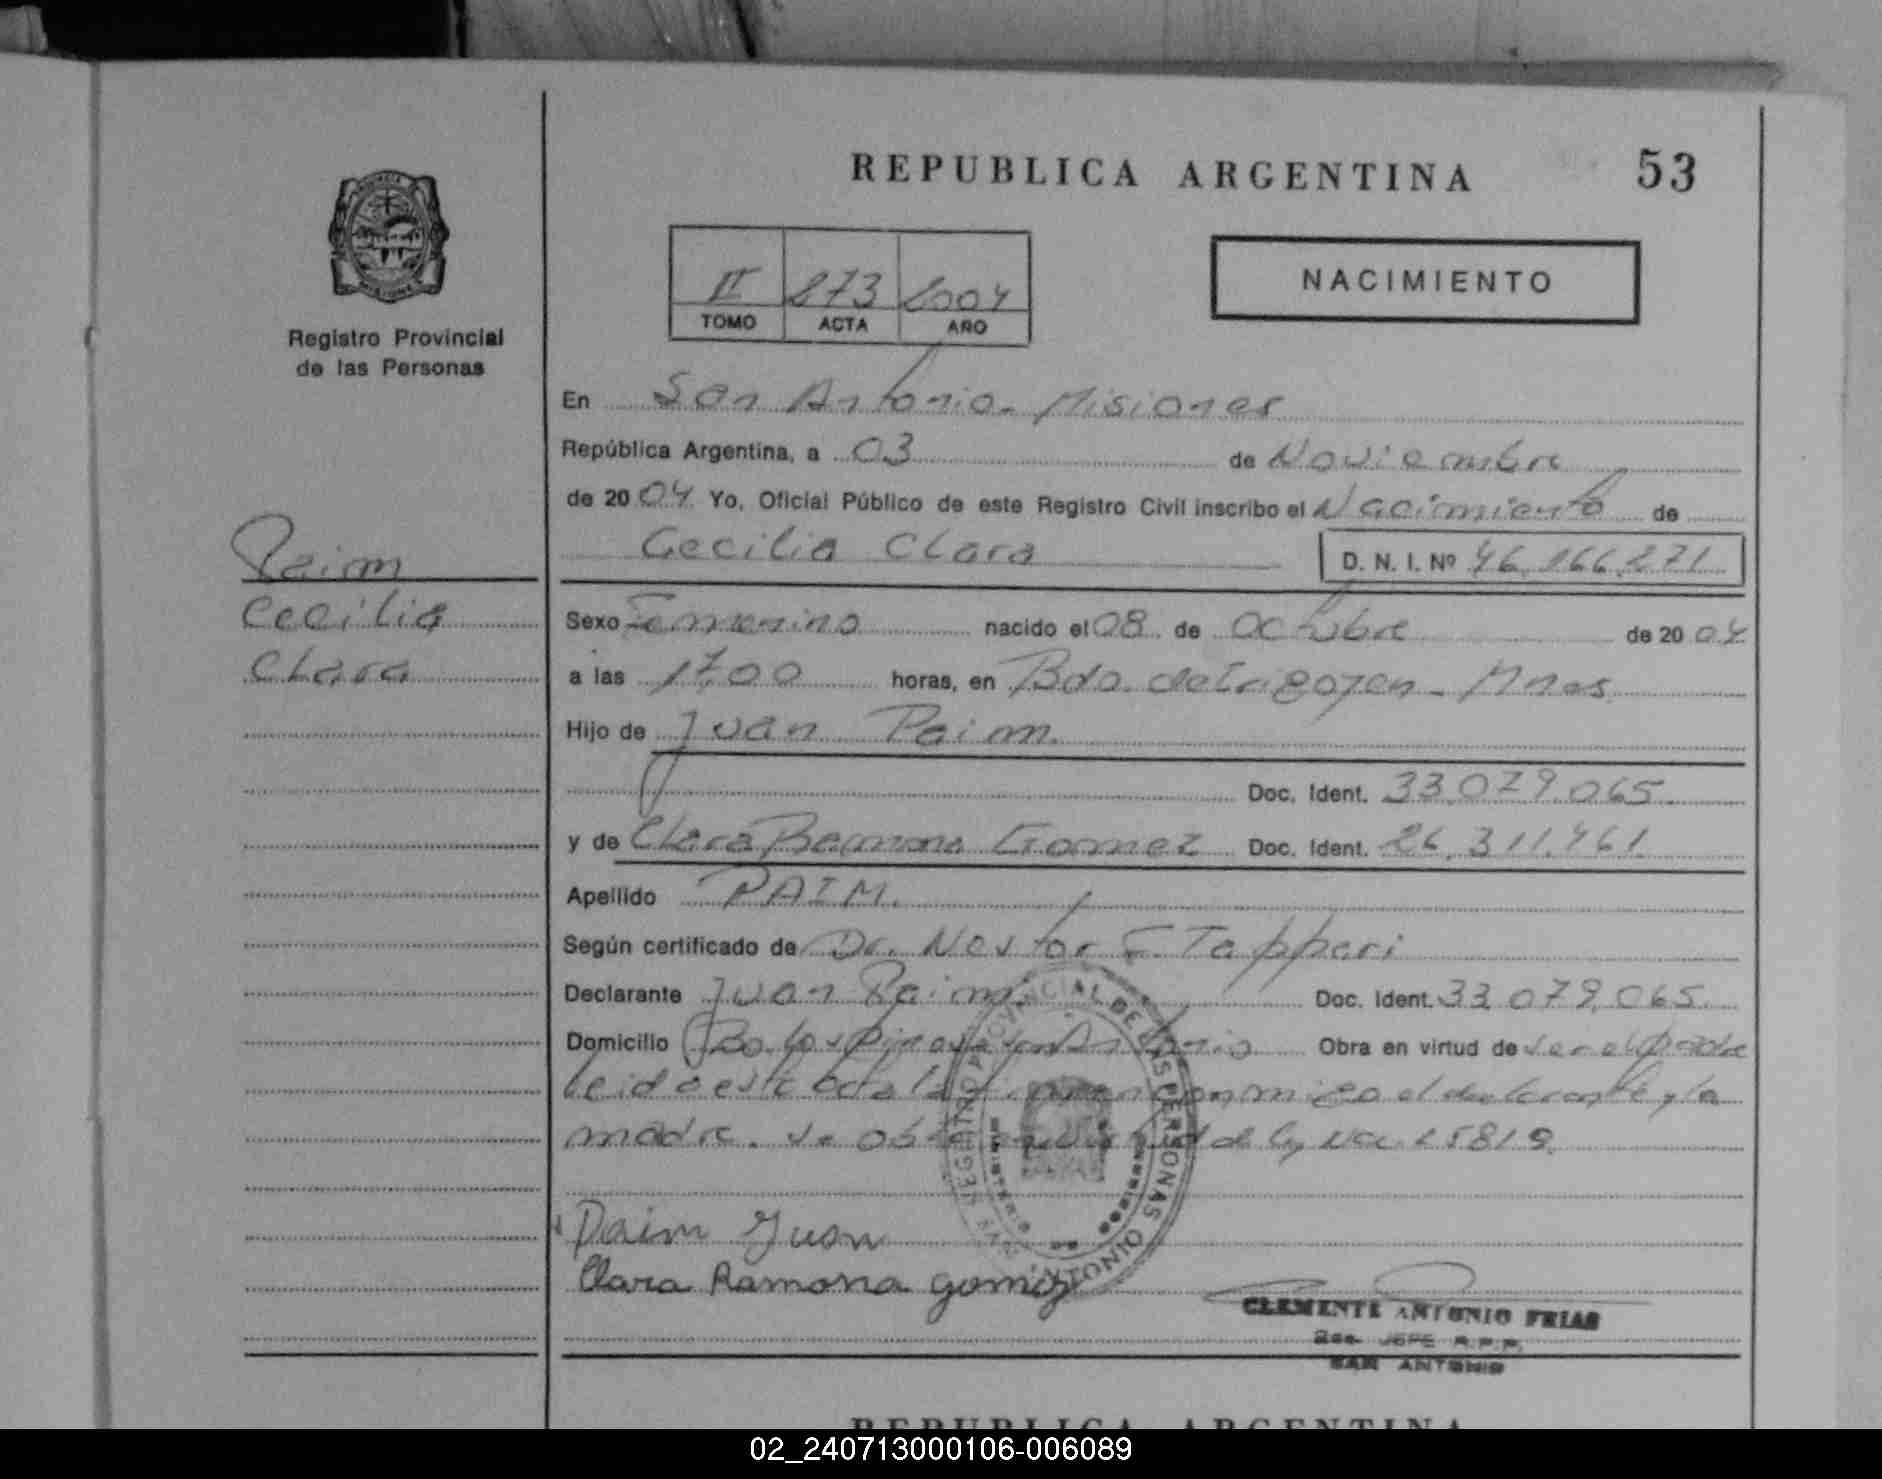 REPUBLICA ARGENTINA
53
II 273 2004
TOMO ACTA AÑO
NACIMIENTO
Registro Provincial
de las Personas
En San Antonio - Misiones
República Argentina, a 03 de Noviembre
de 2004 Yo, Oficial Público de este Registro Civil inscribo el Nacimiento de
Cecilia Clara D. N. I. Nº 46.166.271
Paim
Cecilia
Clara
Sexo Femenino nacido el 08 de Octubre de 2004
a las 17,00 horas, en Bdo. de Irigoyen - Mnes.
Hijo de Juan Paim.
Doc. Ident. 33.079.065
y de Clara Ramona Gomez Doc. Ident. 26.311.461
Apellido PAIM.
Según certificado de Dr. Nestor F. Tappari
Declarante Juan Paim. Doc. Ident. 33.079.065
Domicilio Bo. Los Pinos San Antonio Obra en virtud de ser el padre
leido este acta la firman conmigo el declarante y la
madre. Se ob de ley Nac 25819.
Paim Juan
Clara Ramona gomez
REGISTRO PROVINCIAL DE LAS PERSONAS
SAN ANTONIO
CLEMENTE ANTONIO FRIAS
JEFE R.P.P.
SAN ANTONIO
REPUBLICA ARGENTINA
02_240713000106-006089